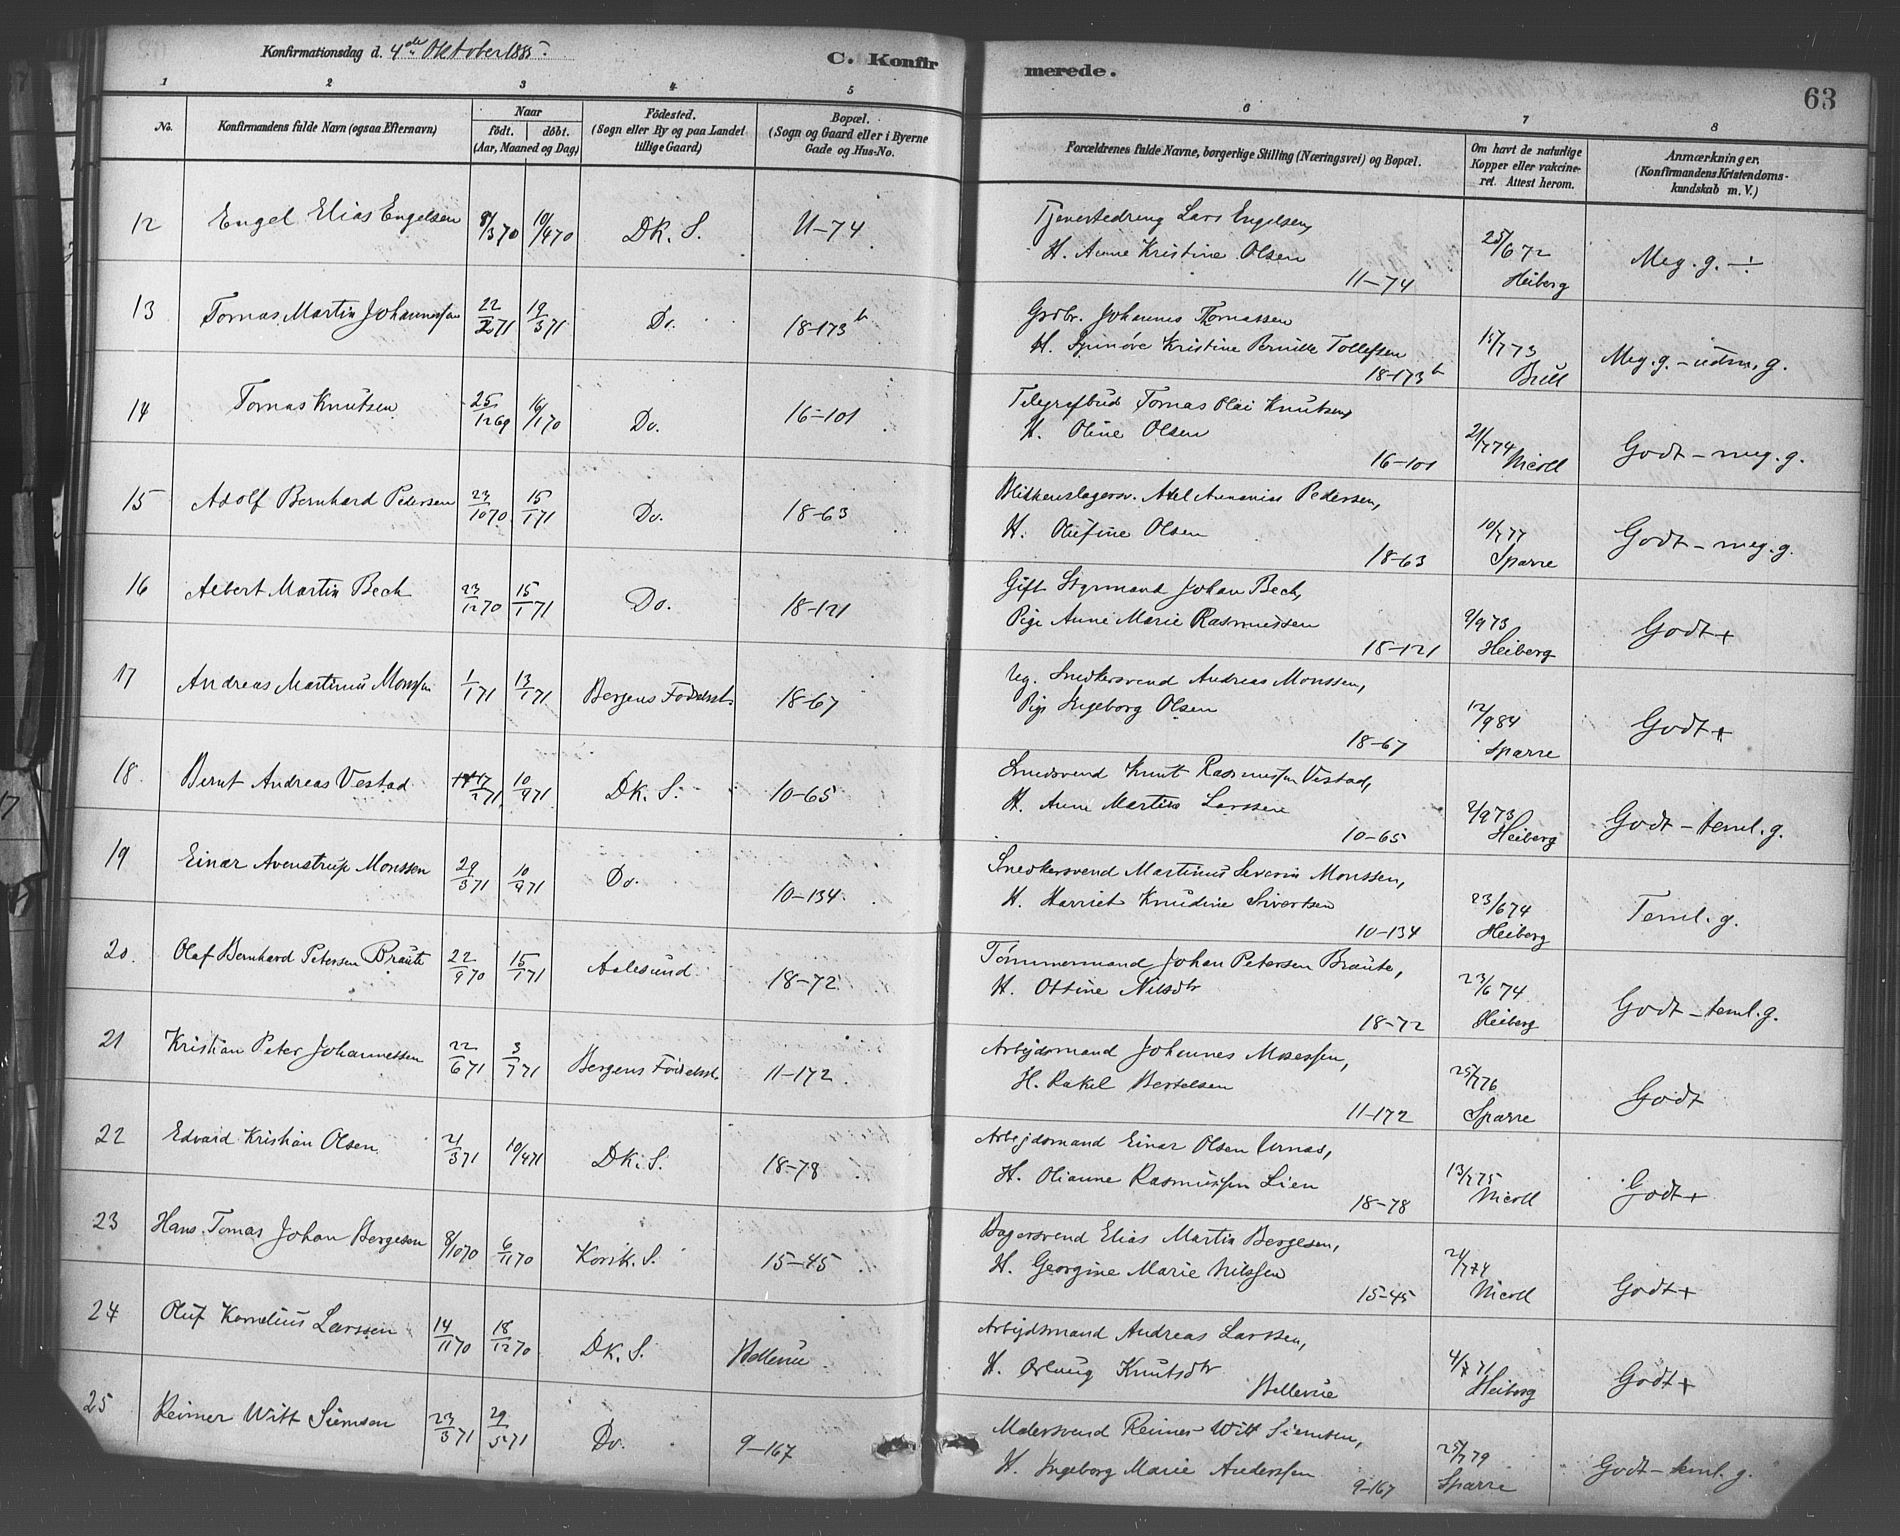 Konfirmationsdag d. 4de Oktober 1885.
C. Konfirmerede.
63
1 2 3 4 5 6 7 8
No.
Konfirmandens fulde Navn (ogsaa Efternavn)
Naar
födt. döbt.
(Aar, Maaned og Dag)
Födested.
(Sogn eller By og paa Landet
tillige Gaard)
Bopæl.
(Sogn og Gaard eller i Byerne
Gade og Hus-No.
Forældrenes fulde Navne, borgerlige Stilling (Næringsvei) og Bopæl.
Om havt de naturlige
Kopper eller vakcine-
ret. Attest herom.
Anmærkninger.
(Konfirmandens Kristendoms-
kundskab m. V.)
12 Engel Elias Engelsen 8/3 70 10/4 70 DK. S. 11-74 Lars Engelsen,
H. Anne Kristine Olsen 11-74 25/6 72 Heiberg Meg. g. ÷
13 Tomas Martin Johannessen 22/2 71 19/3 71 Do. 18-173b Grdbr. Johannes Thomassen
H. Synnøve Kristine Pernille Tollefsen 18-173b 15/7 73 Bull Meg. g. - udm. g.
14 Tomas Knutsen 25/12 69 16/1 70 Do. 16-101 Telegrafbud Tomas Olai Knutsen,
H. Oline Olsen 16-101 21/7 74 Nicoll Godt - meg. g.
15 Adolf Bernhard Pedersen 23/10 70 15/1 71 Do. 18-63 Blikkenslagersv. Axel Ananias Pedersen,
H. Olufine Olsen 18-63 10/7 77 Sparre Godt - meg. g.
16 Albert Martin Bech 23/12 70 15/1 71 Do. 18-121 Gift Styrmand Johan Bech,
Pige Anne Marie Rasmussen 18-121 9/9 73 Heiberg Godt +
17 Andreas Martinus Monssen 1/1 71 13/1 71 Bergens Födselsst. 18-67 Ug. Snedkersvend Andreas Monssen,
Pige Ingeborg Olsen 18-67 12/9 84 Sparre Godt +
18. Bernt Andreas Vestad 10/4 71 DK. S. 10-65 Smedsvend Knut Rasmussen Vestad,
H. Anne Martine Larssen 10-65 2/9 73 Heiberg Godt - teml. g.
19 Einar Avenstrup Monssen 29/3 71 10/4 71 Do. 10-134 Snedkersvend Martinus Severin Monssen,
H. Harriet Knudine Sivertsen 10-134 23/6 74 Heiberg Teml. g.
20. Olaf Bernhard Petersen Braute 22/9 70 15/1 71 Aalesund 18-72 Tømmermand Johan Petersen Braute,
H. Ottine Nilsdtr 18-72 23/6 74 Heiberg Godt - teml. g.
21 Kristian Peter Johannessen 22/6 71 3/7 71 Bergens Födselsst. 11-172 Arbejdsmand Johannes Mosessen,
H. Rakel Bertelsen 11-172 25/7 76 Sparre Godt
22 Edvard Kristian Olsen 21/3 71 10/4 71 DK. S. 18-78 Arbejdsmand Einar Olsen
H. Olianne Rasmussen Lien 18-78 13/7 75 Nicoll Godt +
23 Hans Tomas Johan Bergesen 8/10 70 6/11 70 Korsk. S. 15-45 Bagersvend Elias Martin Bergesen,
H. Georgine Marie Nilssen 15-45 21/7 74 Nicoll Godt +
24 Oluf Kornelius Larssen 14/11 70 18/12 70 DK. S. Bellevue Arbejdsmand Andreas Larssen,
H. Knutsdtr Bellevue 4/7 71 Heiberg Godt +
25 Reimer Witt Siemsen 23/3 71 29/5 71 Do. 9-167 Malersvend Reimer Witt Siemsen,
H. Ingeborg Marie Anderssen 9-167 25/7 79 Sparre Godt - teml. g.